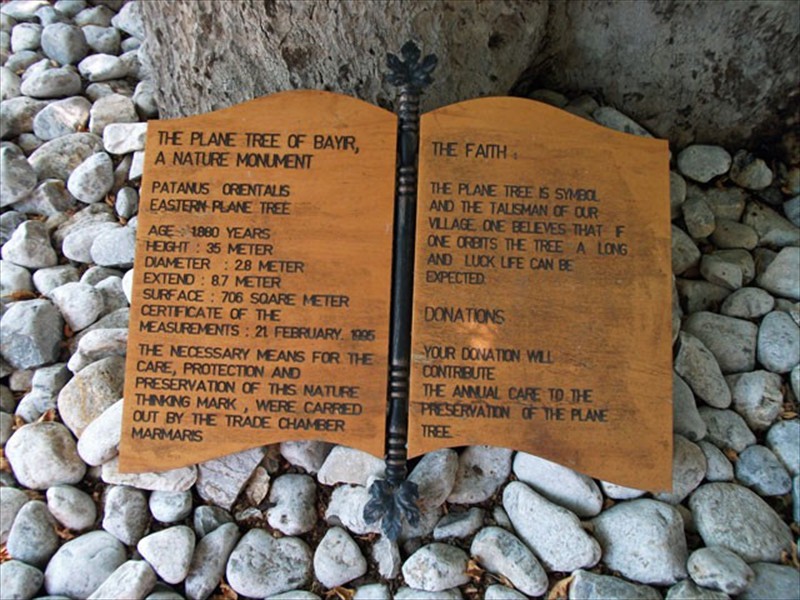 THE PLANE TREE OF BAYIR,
A NATURE MONUMENT
PATANUS ORIENTALIS
EASTERN PLANE TREE
AGE : 1.880 YEARS
HEIGHT : 35 METER
DIAMETER : 2.8 METER
EXTEND : 8.7 METER
SURFACE : 706 SQARE METER
CERTIFICATE OF THE
MEASUREMENTS : 21 FEBRUARY. 1995
THE NECESSARY MEANS FOR THE
CARE, PROTECTION AND
PRESERVATION OF THIS NATURE
THINKING MARK , WERE CARRIED
OUT BY THE TRADE CHAMBER
MARMARIS
THE FAITH :
THE PLANE TREE IS SYMBOL
AND THE TALISMAN OF OUR
VILLAGE. ONE BELIEVES THAT IF
ONE ORBITS THE TREE A LONG
AND LUCK LIFE CAN BE
EXPECTED.
DONATIONS
YOUR DONATION WILL
CONTRIBUTE
THE ANNUAL CARE TO THE
PRESERVATION OF THE PLANE
TREE.